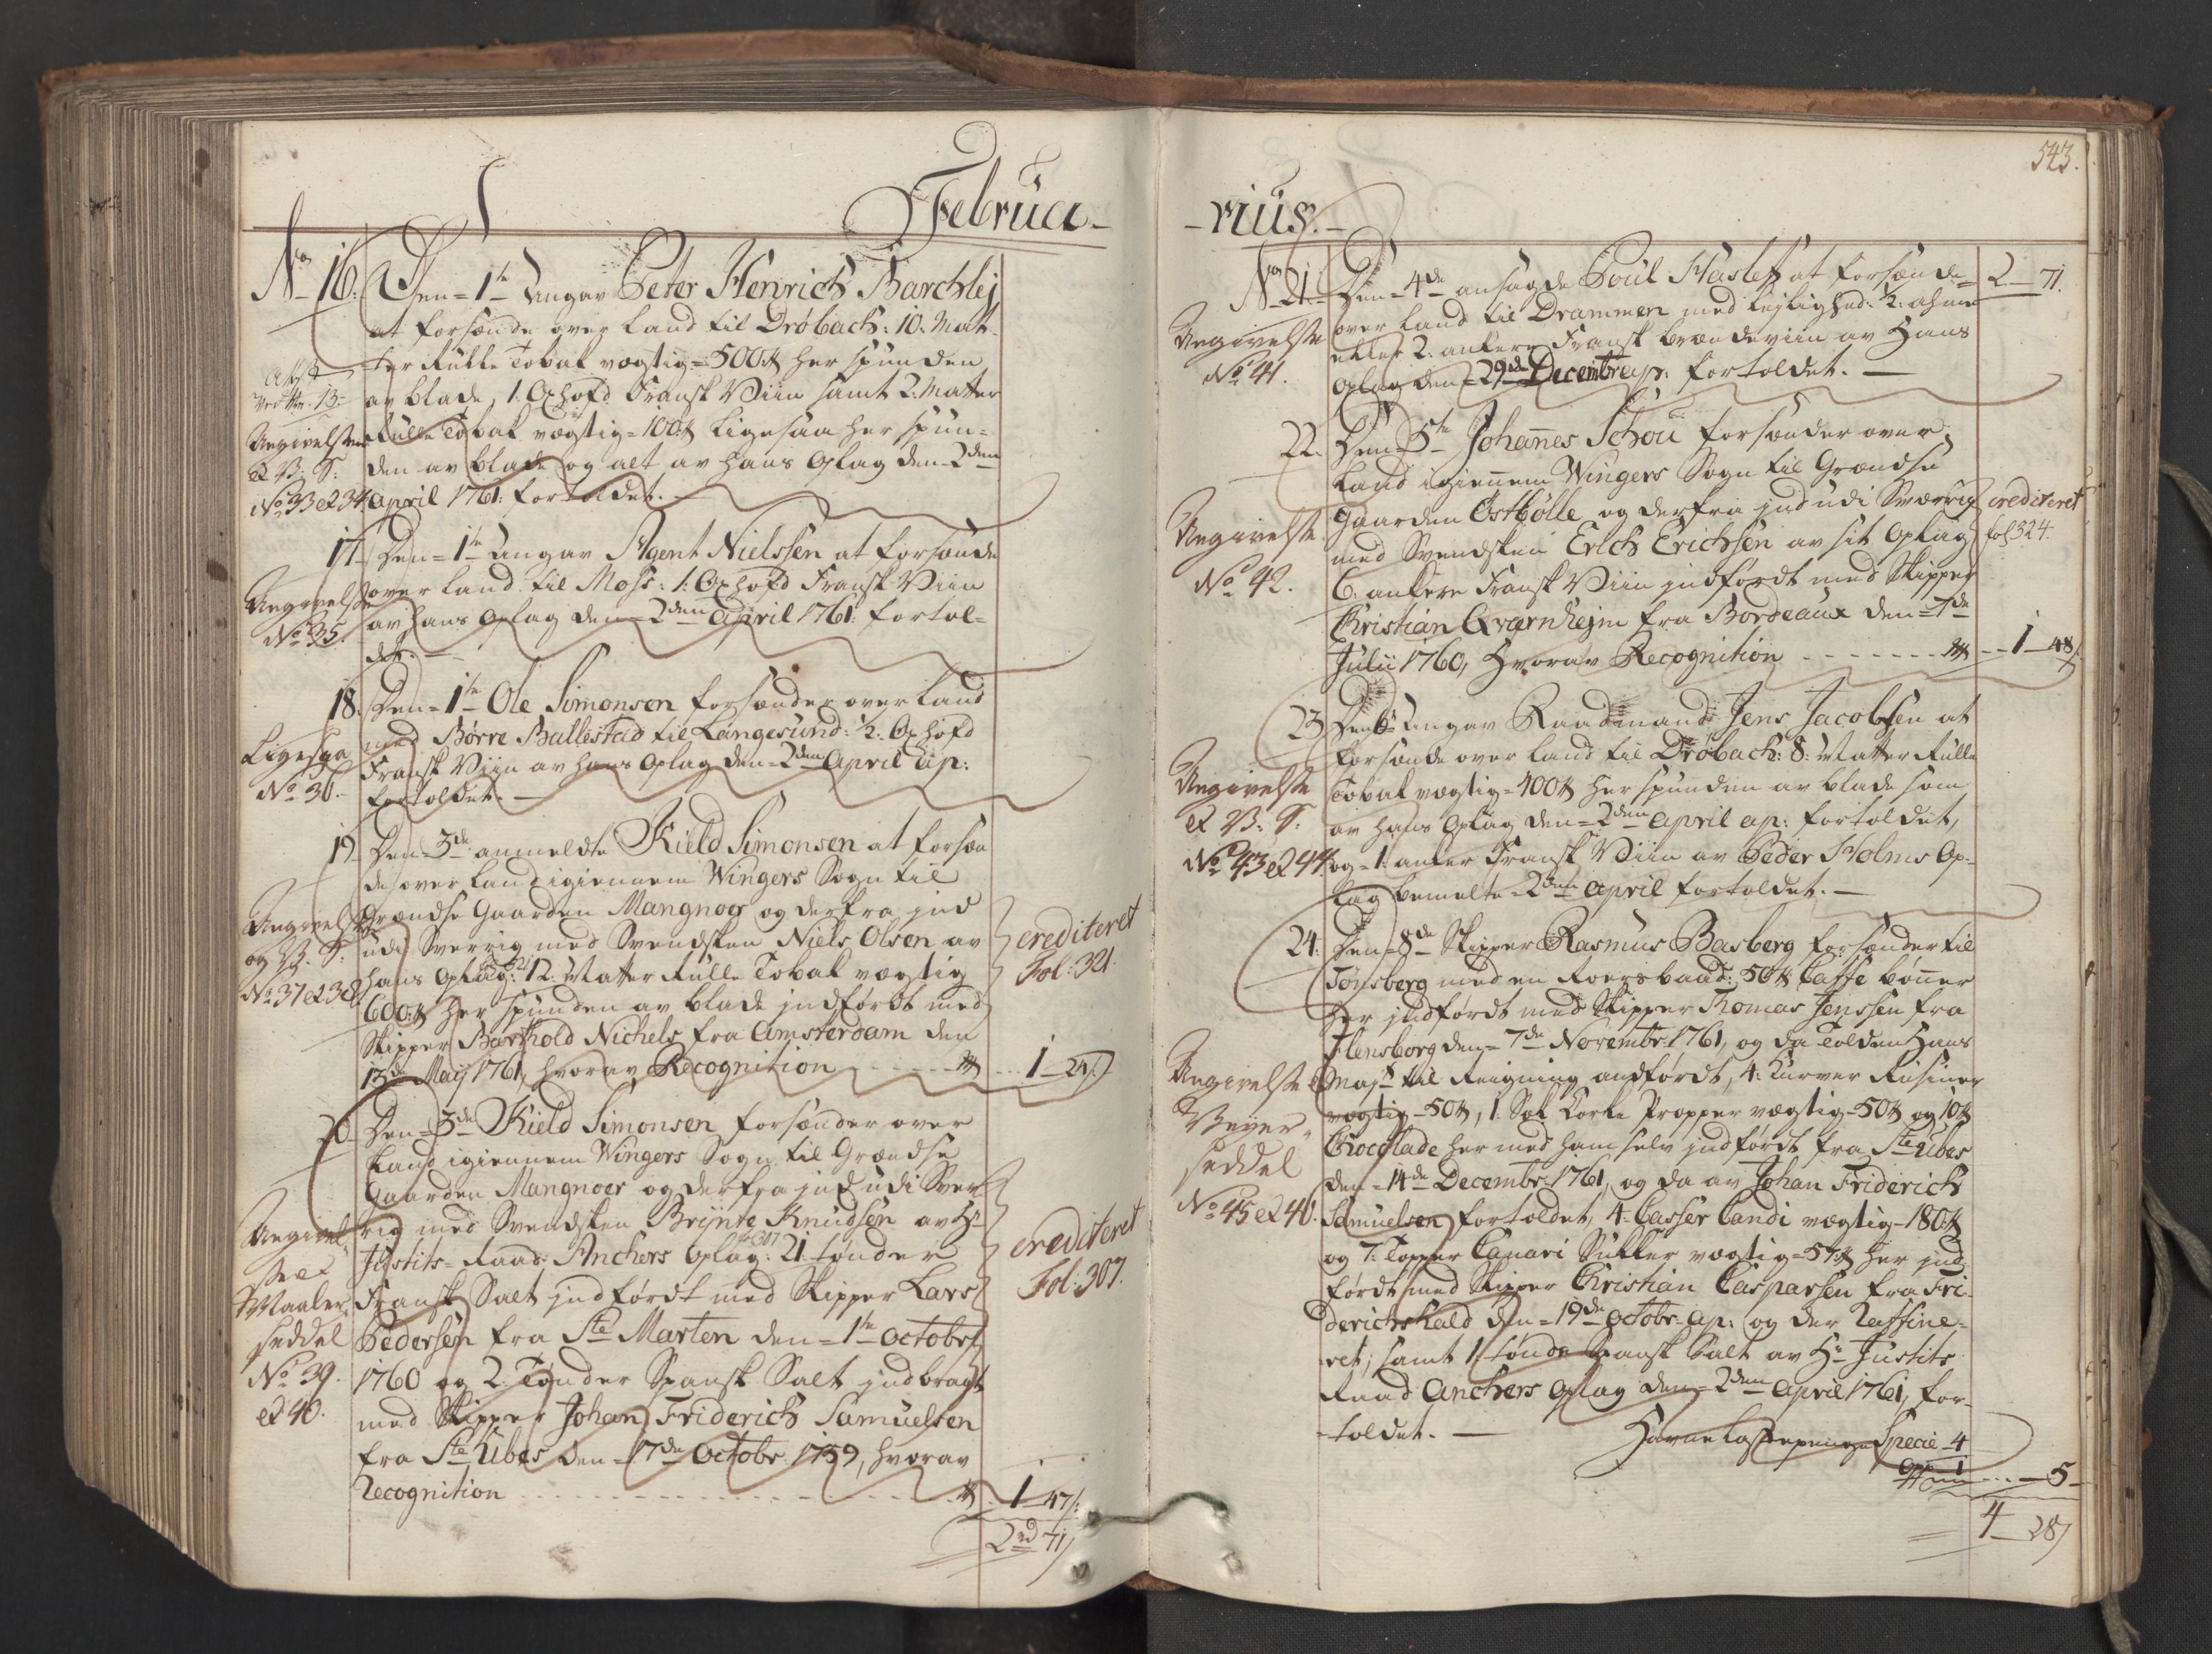 Februa-
No 16. Den = 1te Angav Peter Henrich Barchlej
at forsende over Land til Drøbach: 10: Mat-
ter Rulle Tobak vægtig = 500 ℔ her spunden
av blade, 1. Oxhofd Fransk Viin samt 2: Matter
Rulle Tobak vægtig = 100 ℔ ligesaa her spun-
den av blade og alt av hans Oplag den = 2den
April 1761: fortoldet.
Attest
ved No. 13.
Angivelsten
et V: S:
No 33 et 34
17. Den = 1te Angav Agent Nielssen at forsende
over Land til Moss: 1: Oxhofd Fransk Viin
av hans Oplag den = 2den April 1761: fortol-
det.
Angivelse
No 35.
18. Den = 1te Ole Simonsen forsender over Land
med Børre Ballestad til Langesund: ½: Oxhofd
Fransk Viin av hans Oplag den = 2den April ap:
fortoldet.
Ligesaa
No 36.
19. Den = 3de anmeldte Kield Simonsen at forsen
de over Land igiennem Wingers Sogn til
Grændse Gaarden Mangnoer og derfra ind
udi Sverrig med Svendsken Niels Olsen av
hans Oplag: 12: Matter Rulle Tobak vægtig
600 ℔ her spunden av blade indført med
Skipper Barthold Nichels fra Amsterdam den
13de Maij 1761, hvorav Recognition 1 - 24
Angivelse
og V: S:
No 37 et 38
crediteret
Fol: 321.
20. Den = 3de Kield Simonsen forsender over
Land igiennem Wingers Sogn til Grændse
Gaarden Mangnoer og derfra ind udi Sver
rig med Svendsken Brynte Knudsen av Hr
Justits-Raad Anchers Oplag: 21 tønder
Fransk Salt indført med Skipper Lars
Pedersen fra Ste Marten den = 1te Octobr
1760 og 2. Tønder Spansk Salt indbragt
med Skipper Johan Friderich Samuelsen
fra Ste Ubes den = 17de Octobr 1759, hvorav
Recognition 1 - 47
2 rd 71
Angivel
se et
Maaler
seddel
No 39.
et 40.
crediteret
Fol: 307.
-rius.
543.
No 21. Den = 4de ansagde Poul Hasleff at forsende 2 - 71.
over Land til Drammen med Leylighed: ½: ahme
eller 2: ankere Fransk brændeviin av Hans
Oplag den = 29de Decembr ap: fortoldet.
Angivelse
No 41.
22. Den = 5te Johannes Schou forsender over
Land igiennem Wingers Sogn til Grændse
Gaarden Østbølle og derfra ind udi Sverrig
med Svendsken Erich Erichsen av sit Oplag
6. ankere Fransk Viin indført med Skipper
Christian Qvarnhejm fra Bordeaux den = 7de
Julii 1760, Hvorav Recognition 1 - 48
Angivelse
No 42.
crediteret
fol 324.
23. Den 6te Angav Raadmand Jens Jacobsen at
forsende over Land til Drøbach: 8: Matter Rulle
Tobak vægtig = 400 ℔ her spunden av blade som
av hans Oplag den = 2den April ap: fortoldet,
og = 1: anker Fransk Viin av Peder Holms Op-
lag bemelte 2den April fortoldet.
Angivelse
et V: S:
No 43 et 44
24. Den = 8de Skipper Rasmus Basberg forsender til
Tønsberg med en Roersbaad: 50 ℔ Caffe bønner
her indført med Skipper Thomas Jenssen fra
Flensborg den = 7de Novembr 1761, og da Tolden Hans
Majt til Reigning andført, 4: Kurver Rusiner
vægtig = 50 ℔, 1. Sæk Korke Propper vægtig = 50 ℔ og 10 ℔
Chocolade her med ham selv indført fra Ste Ubes
den = 14de Decembr 1761, og da av Johan Friderich
Samuelsen fortoldet, 4: Casser Candi vægtig = 180 ℔
og 7: Topper Canari Sukker vægtig = 57 ℔ her ind
ført med Skipper Christian Casparsen fra Fri-
derichshald den = 19de Octobr ap: og der Raffine-
ret; samt 1 tønde Spansk Salt av Hr Justits
Raad Anchers Oplag den = 2den April 1761, for-
toldet.
Havne Lastepenge Specie 4
Opp - 1
5
4 - 28
Angivelse
Veyer-
seddel
No 45 et 46.